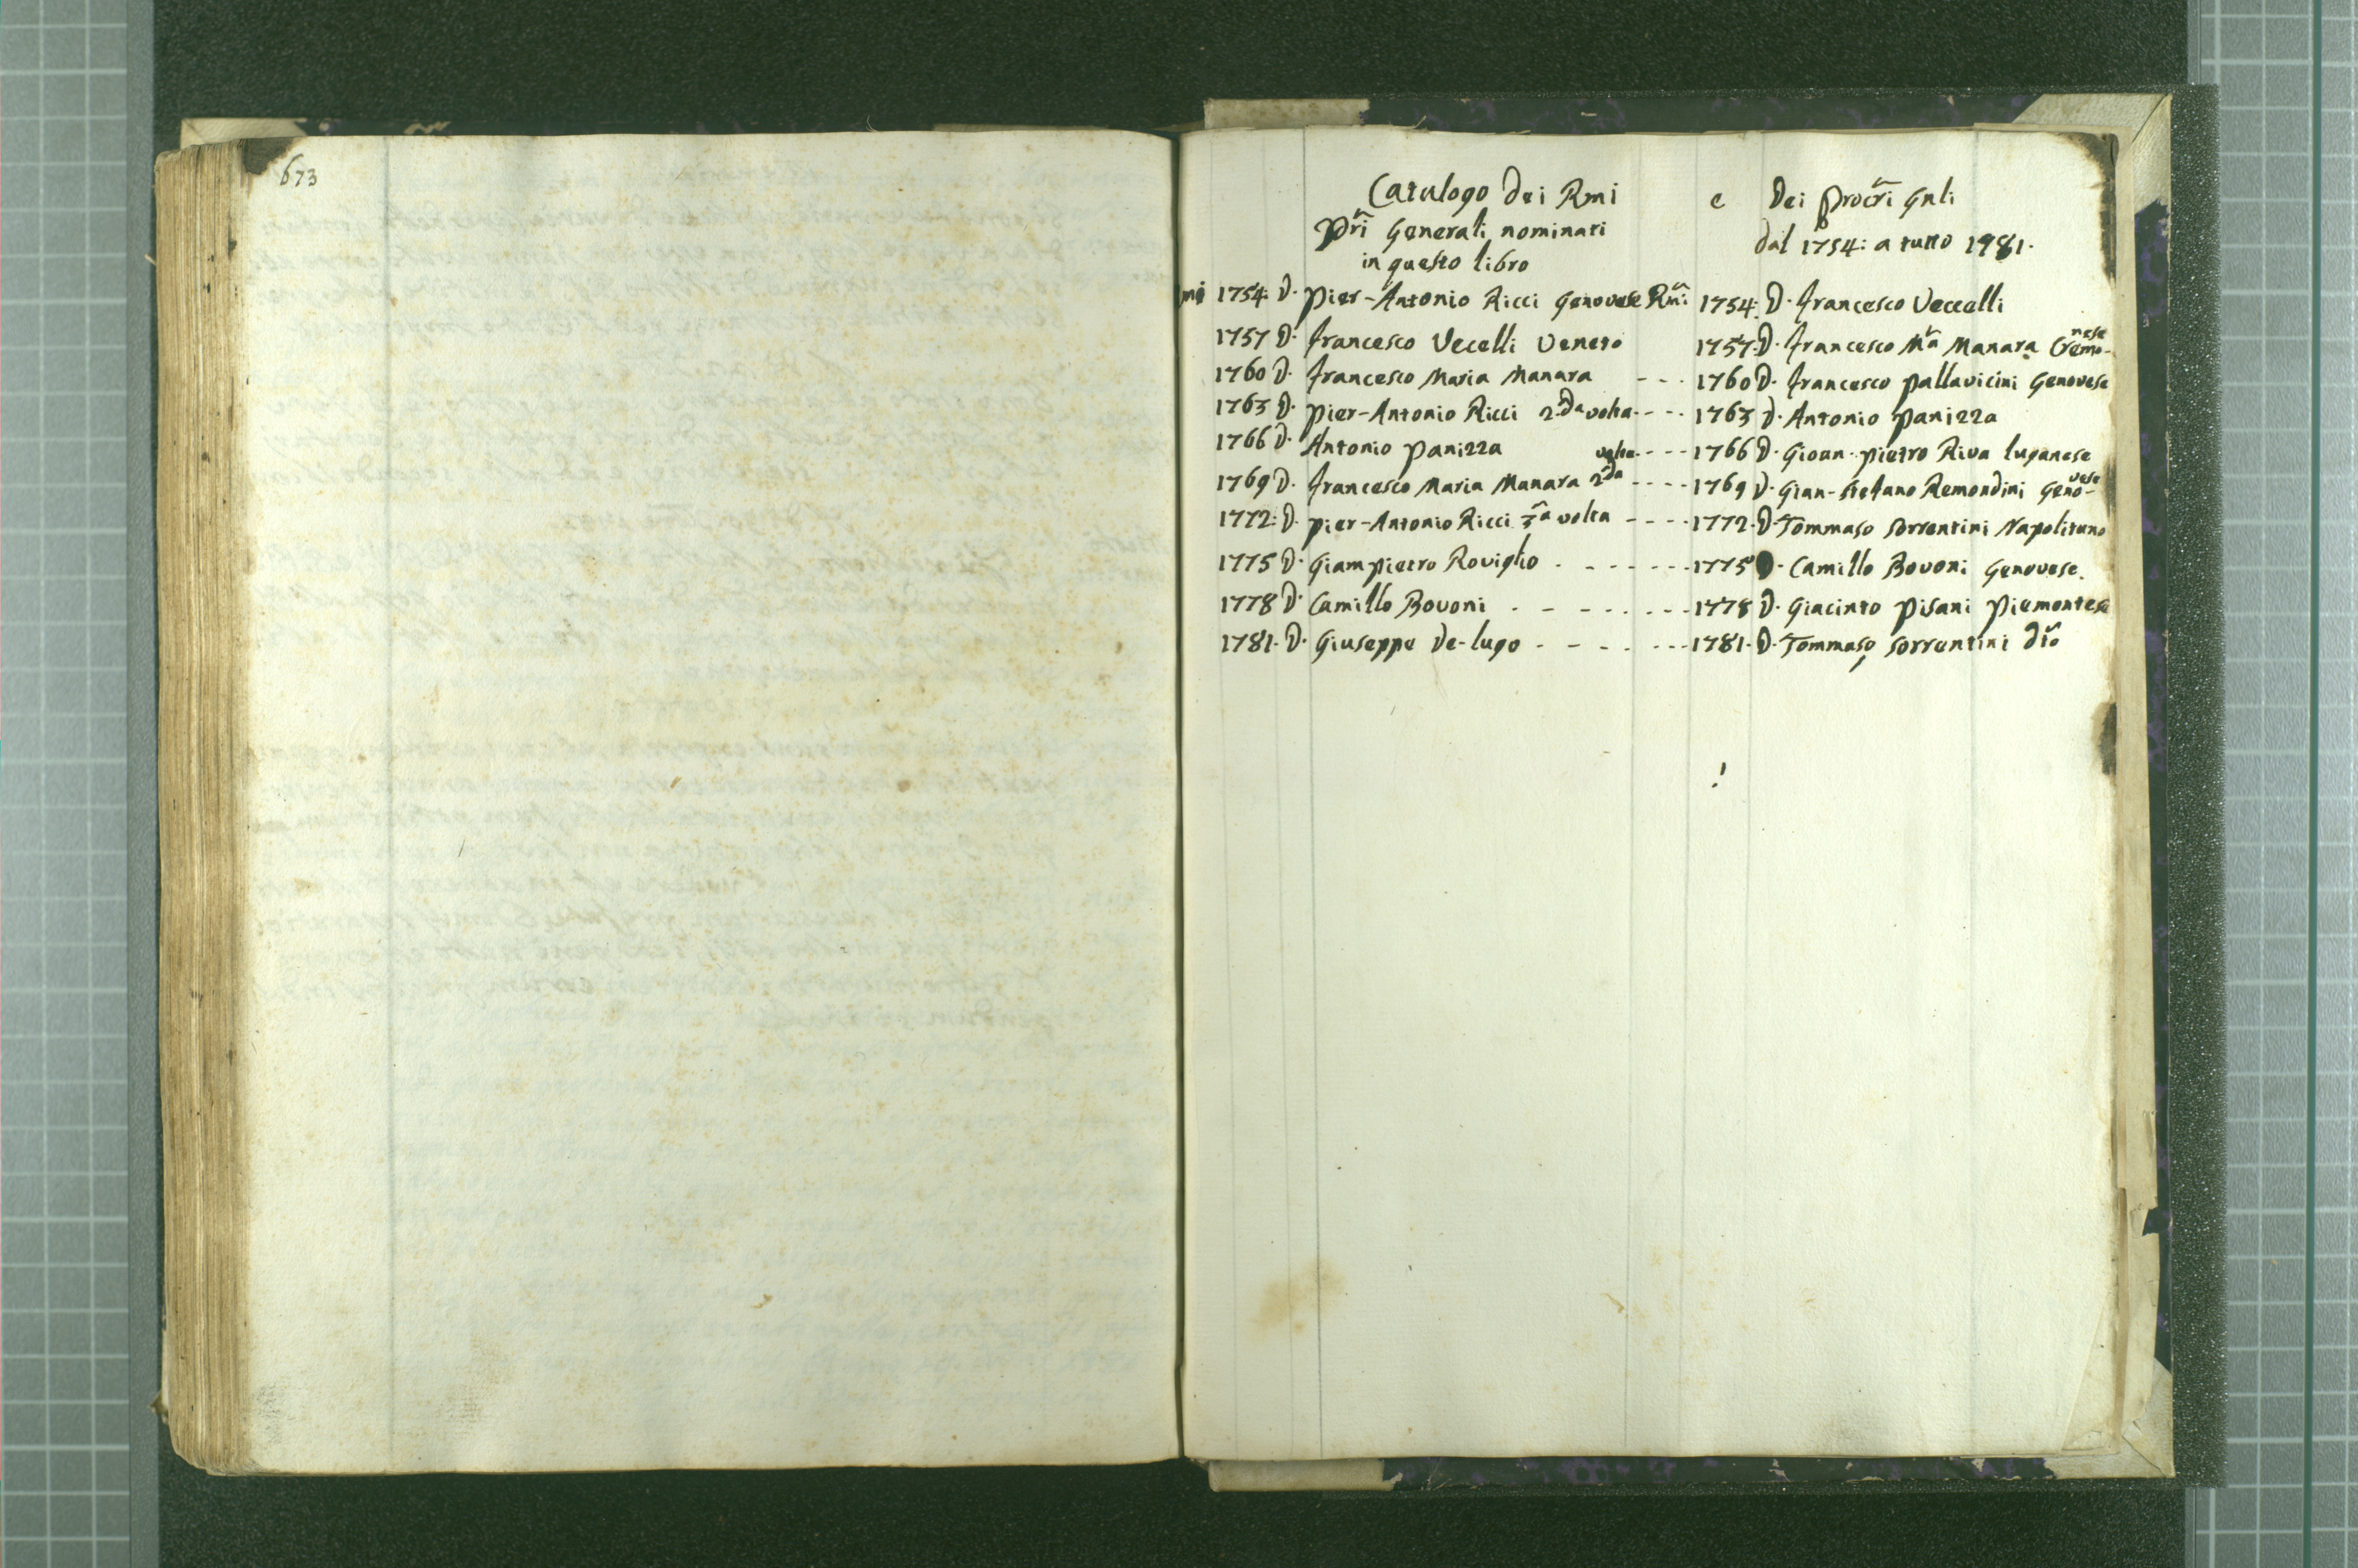 673
Catalogo dei Rmi e Dei Procri Gnli
Pri Generali nominati dal 1754: a tutto 1981.
in questo libro
mi 1754: D. Pier-Antonio Ricci Genovese Rmi 1754: D. Francesco Veccelli
1757 D. Francesco Vecelli Veneto 1757: D. Francesco Ma Manara Cremo-nese
1760 D. Francesco Maria Manara --- 1760 D. Francesco Pallavicini Genovese
1763 D. Pier-Antonio Ricci 2da volta ---- 1763 D. Antonio Panizza
1766 D. Antonio Panizza --- 1766 D. Gioan-Pietro Riva luganese
1769 D. Francesco Maria Manara 2da volta ---- 1769 D. Gian-Stefano Remondini Geno-vese
1772: D. Pier-Antonio Ricci 3a volta ---- 1772. D. Tommaso Sorrentini Napolitano
1775 D. Giampietro Roviglio . ------- 1775 D. Camillo Bovoni Genovese.
1778 D. Camillo Bovoni . ------- 1778 D. Giacinto Pisani Piemontese
1781. D. Giuseppe De-lugo ------- 1781. D. Tommaso Sorrentini dto